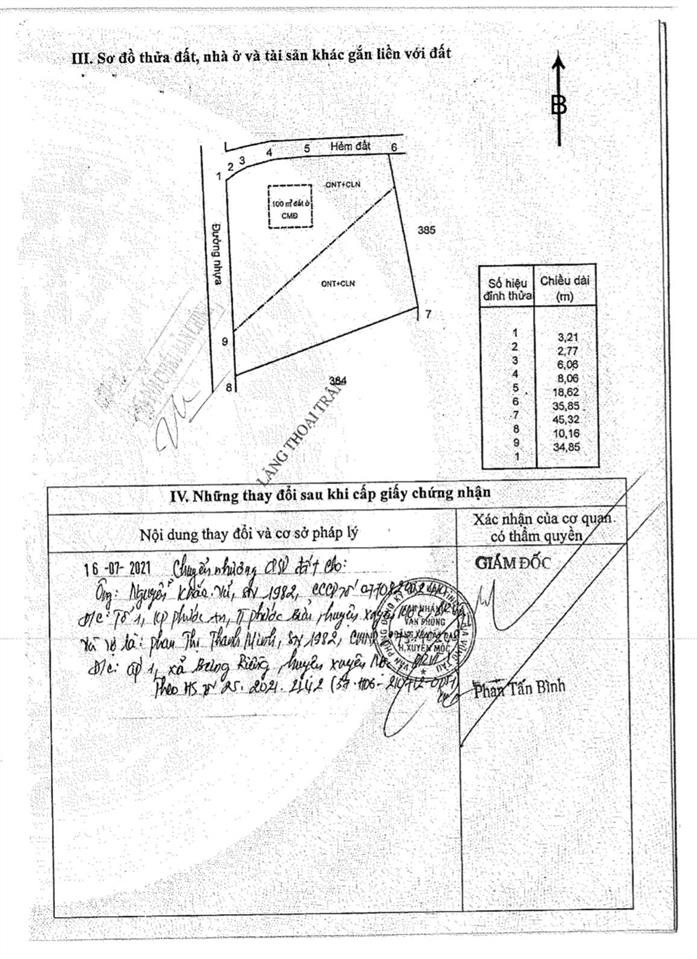 III. Sơ đồ thửa đất, nhà ở và tài sản khác gắn liền với đất
B
Hẻm đất
1 2 3 4 5 6
ONT+CLN
100 m² đất ở
CMĐ
Đường nhựa
385
ONT+CLN
7
9
8
384
LĂNG THOẠI TRÂN
Số hiệu đỉnh thửa
Chiều dài (m)
1
3,21
2
2,77
3
6,06
4
8,06
5
18,62
6
35,85
7
45,32
8
10,16
9
34,85
1
IV. Những thay đổi sau khi cấp giấy chứng nhận
Nội dung thay đổi và cơ sở pháp lý
Xác nhận của cơ quan
có thẩm quyền
16-07-2021 Chuyển nhượng QSD đất cho:
Ông: Nguyễn Khắc SN 1982, CCCD số
Đ/c: Tổ 1, KP Phước An, TT Phước Bửu, huyện Xuyên Mộc
Và vợ là: Phan Thị Thanh Minh, SN 1982, CMND
Đ/c: ấp 1, xã Bưng Riềng, huyện Xuyên Mộc
Theo HS số 25. 2021. 2142
GIÁM ĐỐC
CHI NHÁNH
VĂN PHÒNG
ĐĂNG KÝ ĐẤT ĐAI
H.XUYÊN MỘC
Phạn Tấn Bình